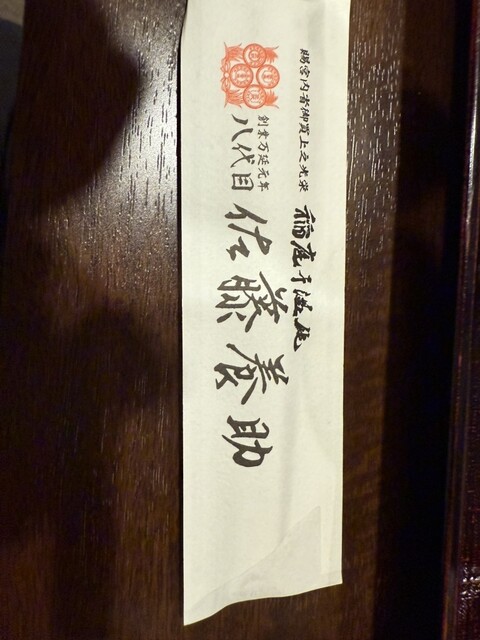 賜宮内省御買上之光栄
稲庭干饂飩
創業万延元年
八代目 佐藤養助